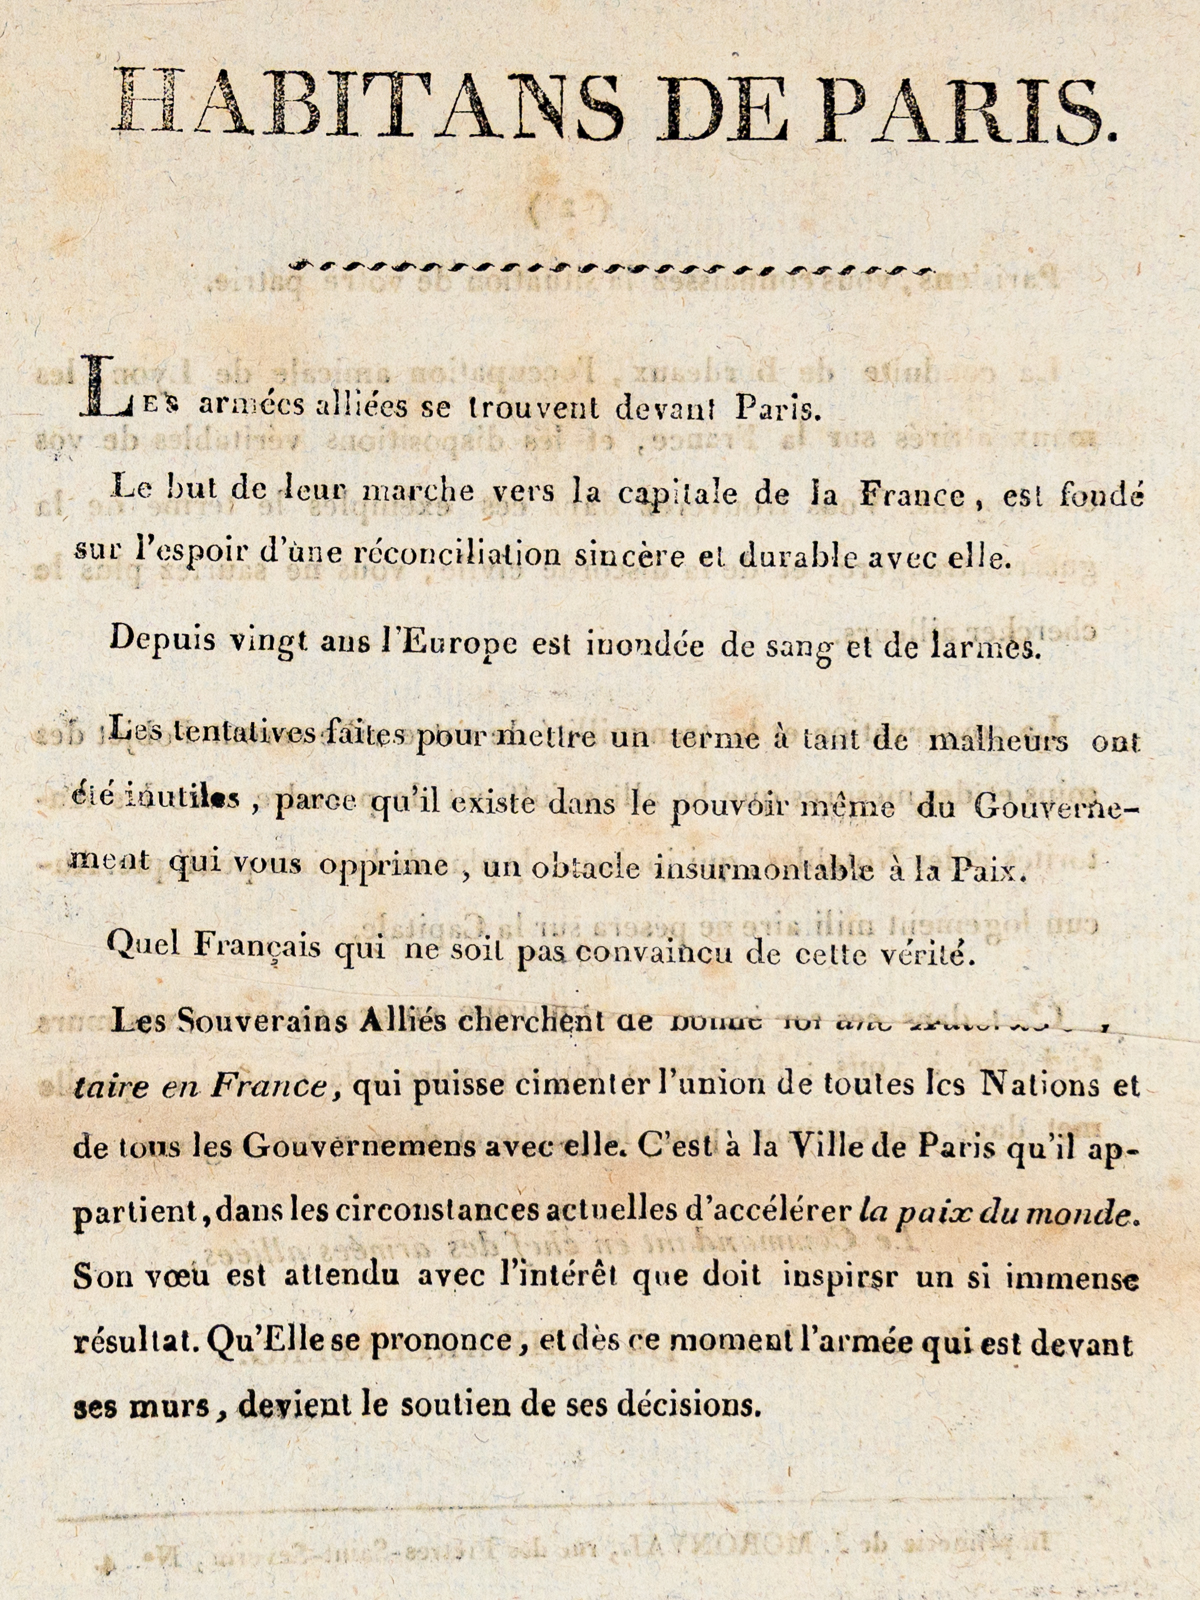 HABITANS DE PARIS.
LES armées alliées se trouvent devant Paris.
Le but de leur marche vers la capitale de la France, est fondé
sur l'espoir d'une réconciliation sincère et durable avec elle.
Depuis vingt ans l'Europe est inondée de sang et de larmes.
Les tentatives faites pour mettre un terme à tant de malheurs ont
été inutiles, parce qu'il existe dans le pouvoir même du Gouverne-
ment qui vous opprime, un obtacle insurmontable à la Paix.
Quel Français qui ne soit pas convaincu de cette vérité.
Les Souverains Alliés cherchent de bonne foi une
taire en France, qui puisse cimenter l'union de toutes les Nations et
de tous les Gouvernemens avec elle. C'est à la Ville de Paris qu'il ap-
partient, dans les circonstances actuelles d'accélérer la paix du monde.
Son vœu est attendu avec l'intérêt que doit inspirsr un si immense
résultat. Qu'Elle se prononce, et dès ce moment l'armée qui est devant
ses murs, devient le soutien de ses décisions.